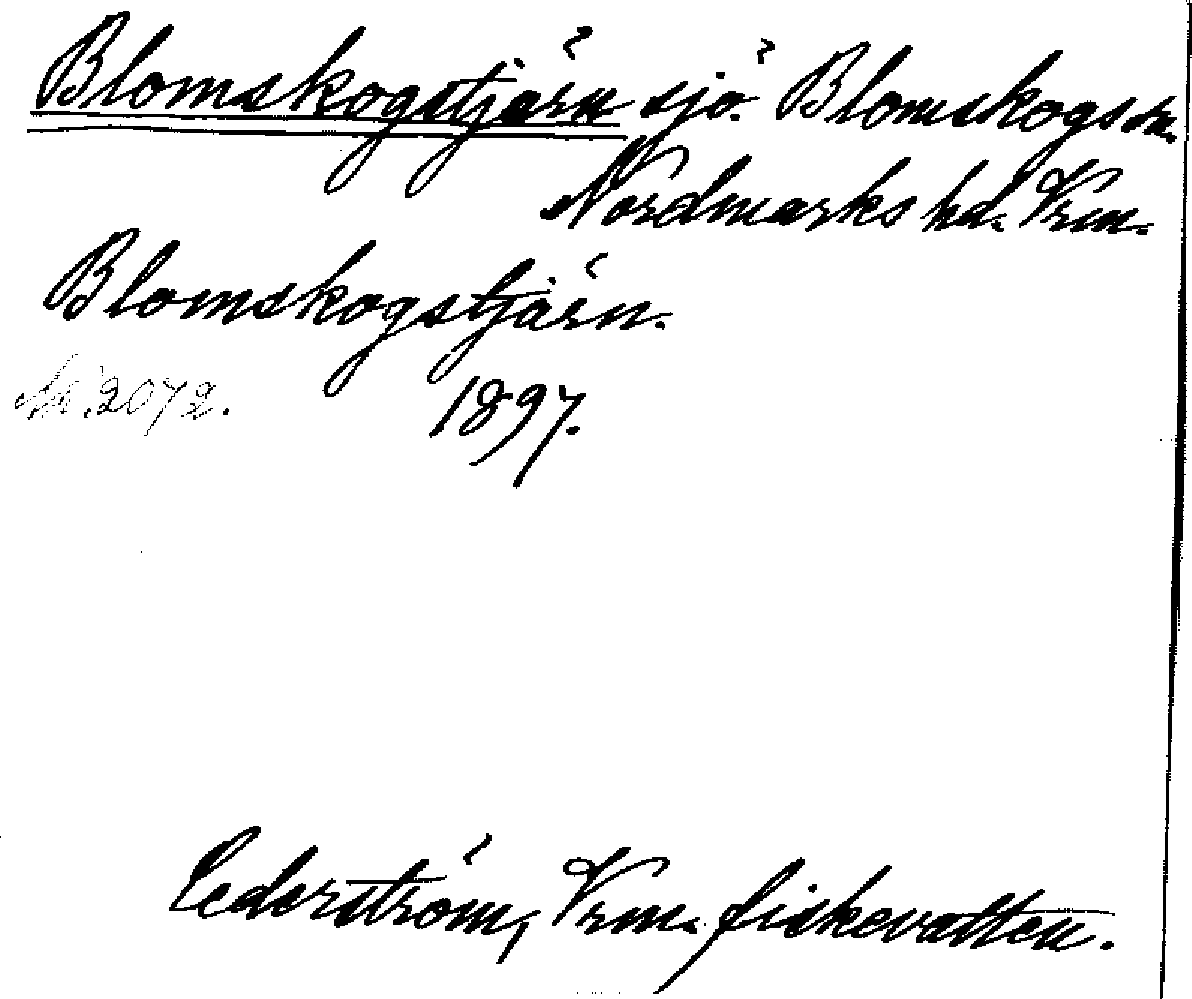 Blomskogstjärn sjö. Blomskogs sn.
Nordmarks hd. Vrm.
Blomskogstjärn.
2072. 1897.
Cederström, Vrm. fiskevatten.